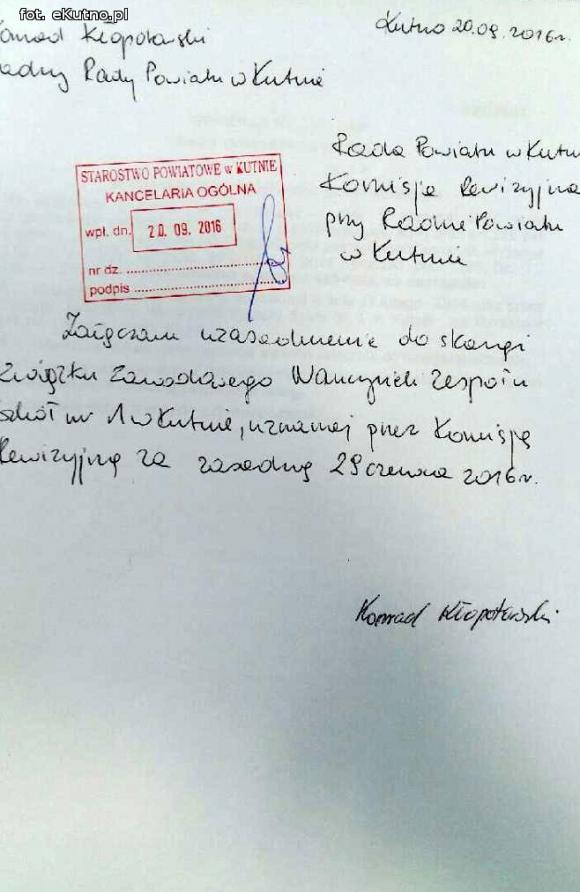 fot. eKutno.pl
Konrad Kłopotowski
Kutno 20.09.2016r.
radny Rady Powiatu w Kutnie
Rada Powiatu w Kutni
Komisja Rewizyjna
przy Radzie Powiatu
w Kutnie
STAROSTWO POWIATOWE w KUTNIE
KANCELARIA OGÓLNA
wpł. dn. 20. 09. 2016
nr dz. ...........................
podpis ...........................
Załączam uzasadnienie do skargi
Związku Zawodowego Zespołu
Szkół nr 1 w Kutnie, uznanej przez Komisję
Rewizyjną za zasadną 29 czerwca 2016r.
Konrad Kłopotowski